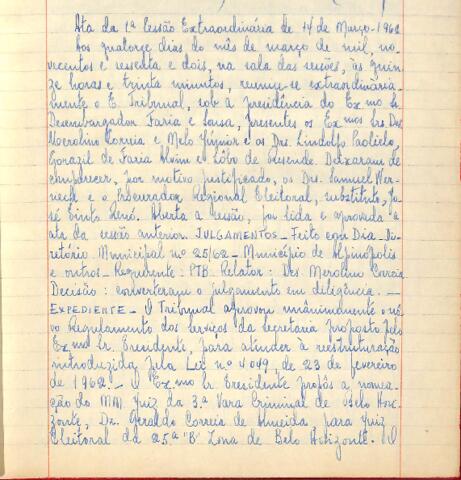 Ata da 1ª Sessão Extraordinária de 14 de Março-1962
Aos quatorze dias do mês de março de mil, no-
vecentos e sessenta e dois, na sala das sessões, às quin-
ze horas e trinta minutos, reuniu-se extraordinària-
mente o E. Tribunal, sob a presidência do Exmo Sr.
Desembargador Faria e Sousa, presentes os Exmos Srs. Des.
Merolino Corrêa e Melo Júnior e os Drs. Lindolfo Paoliello,
Gorazil de Faria Alvim e Lôbo de Resende. Deixaram de
comparecer, por motivo justificado, os Drs. Samuel Wer-
neck e o Procurador Regional Eleitoral, substituto, Jo-
sé Pinto Renó. Aberta a sessão, foi lida e aprovada a
ata da sessão anterior. JULGAMENTOS - Feito com Dia - Di-
retório Municipal nº 25/62 - Município de Alpinópolis
e outros - Requerente: PTB. Relator: Des. Merolino Corrêa
Decisão: converteram o julgamento em diligência. -
EXPEDIENTE - O Tribunal aprovou unânimemente o nô-
vo Regulamento dos Serviços da Secretaria proposto pelo
Exmo Sr. Presidente, para atender à reestruturação
introduzida pela Lei nº 4049, de 23 de fevereiro
de 1962. - O Exmo Sr. Presidente propôs a nomea-
ção do MM Juiz da 3ª Vara Criminal de Belo Hori-
zonte, Dr. Geraldo Correia de Almeida para Juiz
Eleitoral da 25ª "B" Zona de Belo Horizonte. O